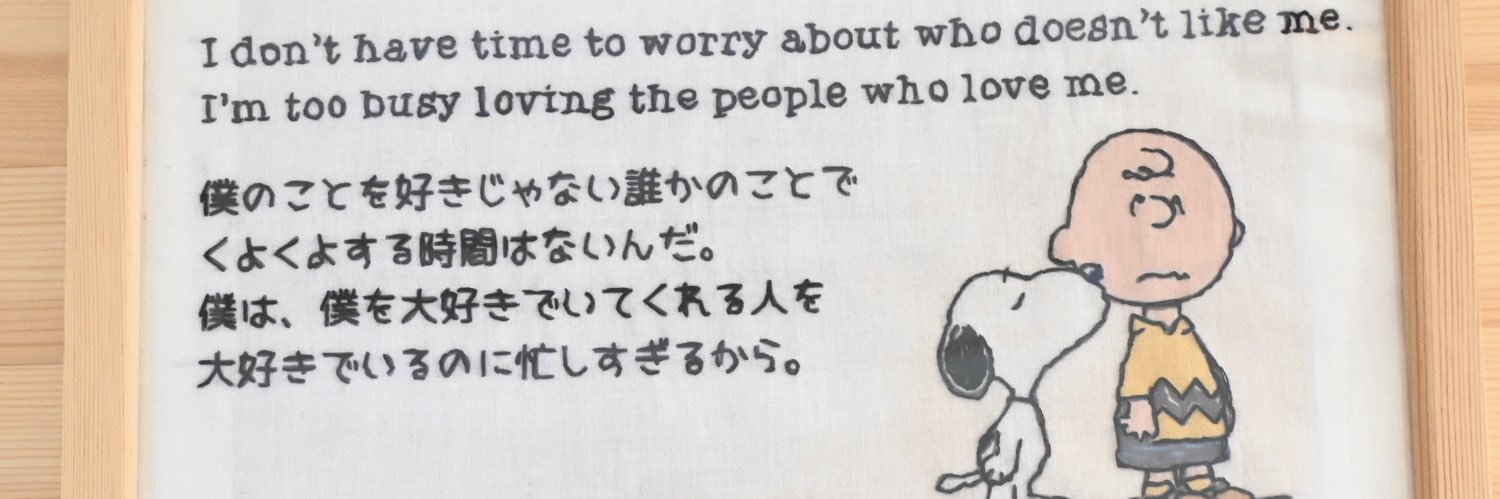 I don't have time to worry about who doesn't like me.
I'm too busy loving the people who love me.
僕のことを好きじゃない誰かのことで
くよくよする時間はないんだ。
僕は、僕を大好きでいてくれる人を
大好きでいるのに忙しすぎるから。